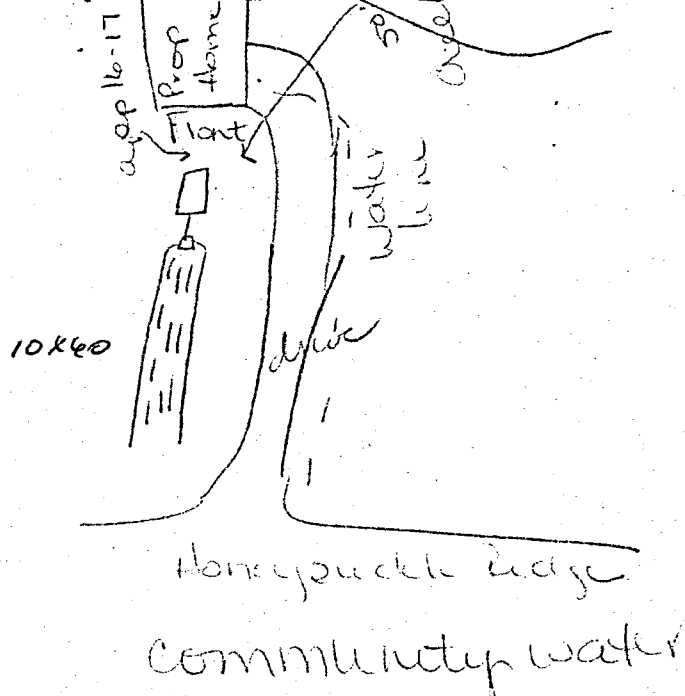 16-17
Prop
Home
Front
Water
line
10x60
drive
Honeysuckle Ridge
Community water